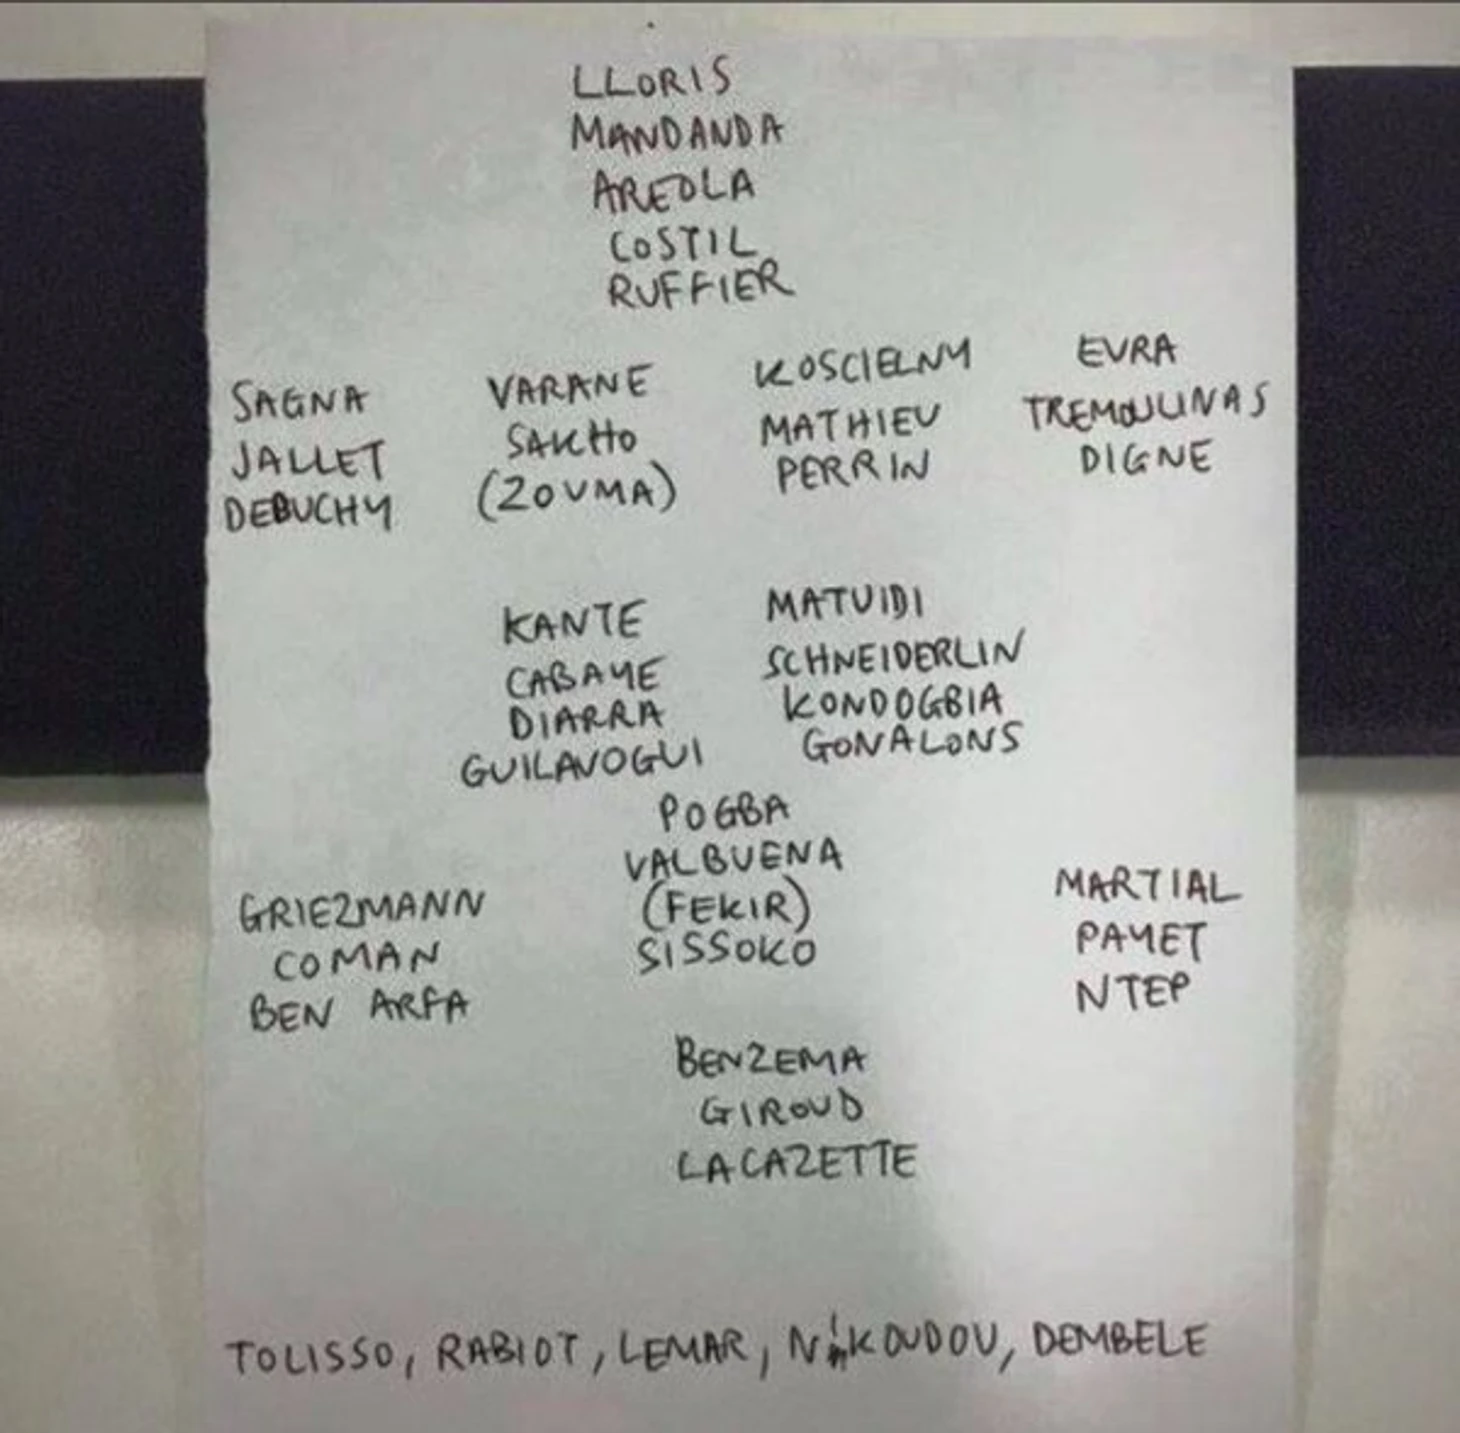 LLORIS
MANDANDA
AREOLA
COSTIL
RUFFIER
SAGNA
JALLET
DEBUCHY
VARANE
SAKHO
(ZOUMA)
KOSCIELNY
MATHIEU
PERRIN
EVRA
TREMOULINAS
DIGNE
KANTE
CABAYE
DIARRA
GUILAVOGUI
MATUIDI
SCHNEIDERLIN
KONDOGBIA
GONALONS
POGBA
VALBUENA
(FEKIR)
SISSOKO
GRIEZMANN
COMAN
BEN ARFA
MARTIAL
PAYET
NTEP
BENZEMA
GIROUD
LACAZETTE
TOLISSO, RABIOT, LEMAR, N'KOUDOU, DEMBELE